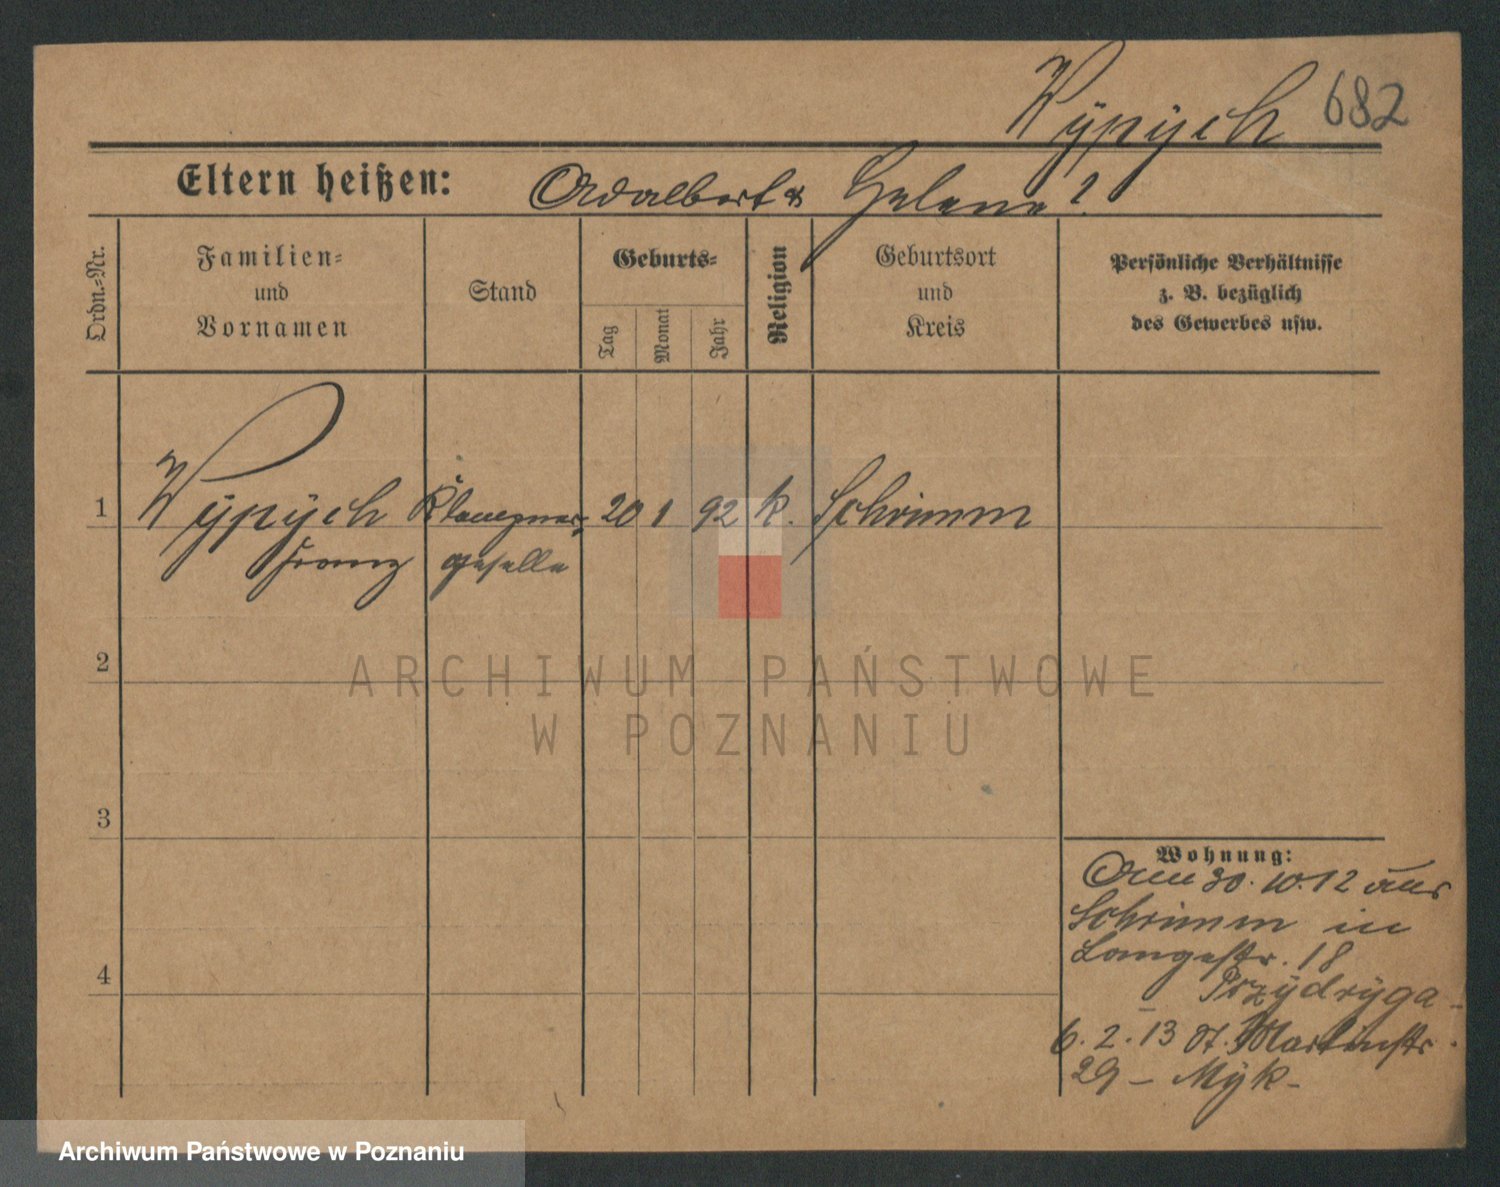 Wÿpÿch 682
Eltern heißen: Adalbert & Helene ?
Ordn.-Nr.
Familien-
und
Vornamen
Stand
Geburts-
Tag
Monat
Jahr
Religion
Geburtsort
und
Kreis
Persönliche Verhältnisse
z. B. bezüglich
des Gewerbes usw.
1 Wÿpÿch Klempner- 20 1 92 k. Schrimm
Franz geselle
2
3
4
Wohnung:
Am 30.10.12 aus
Schrimm in
Langestr. 18
Przÿdrÿga -
6.2.13 St. Martinstr.
29 - Mÿk -
ARCHIWUM PAŃSTWOWE
W POZNANIU
Archiwum Państwowe w Poznaniu